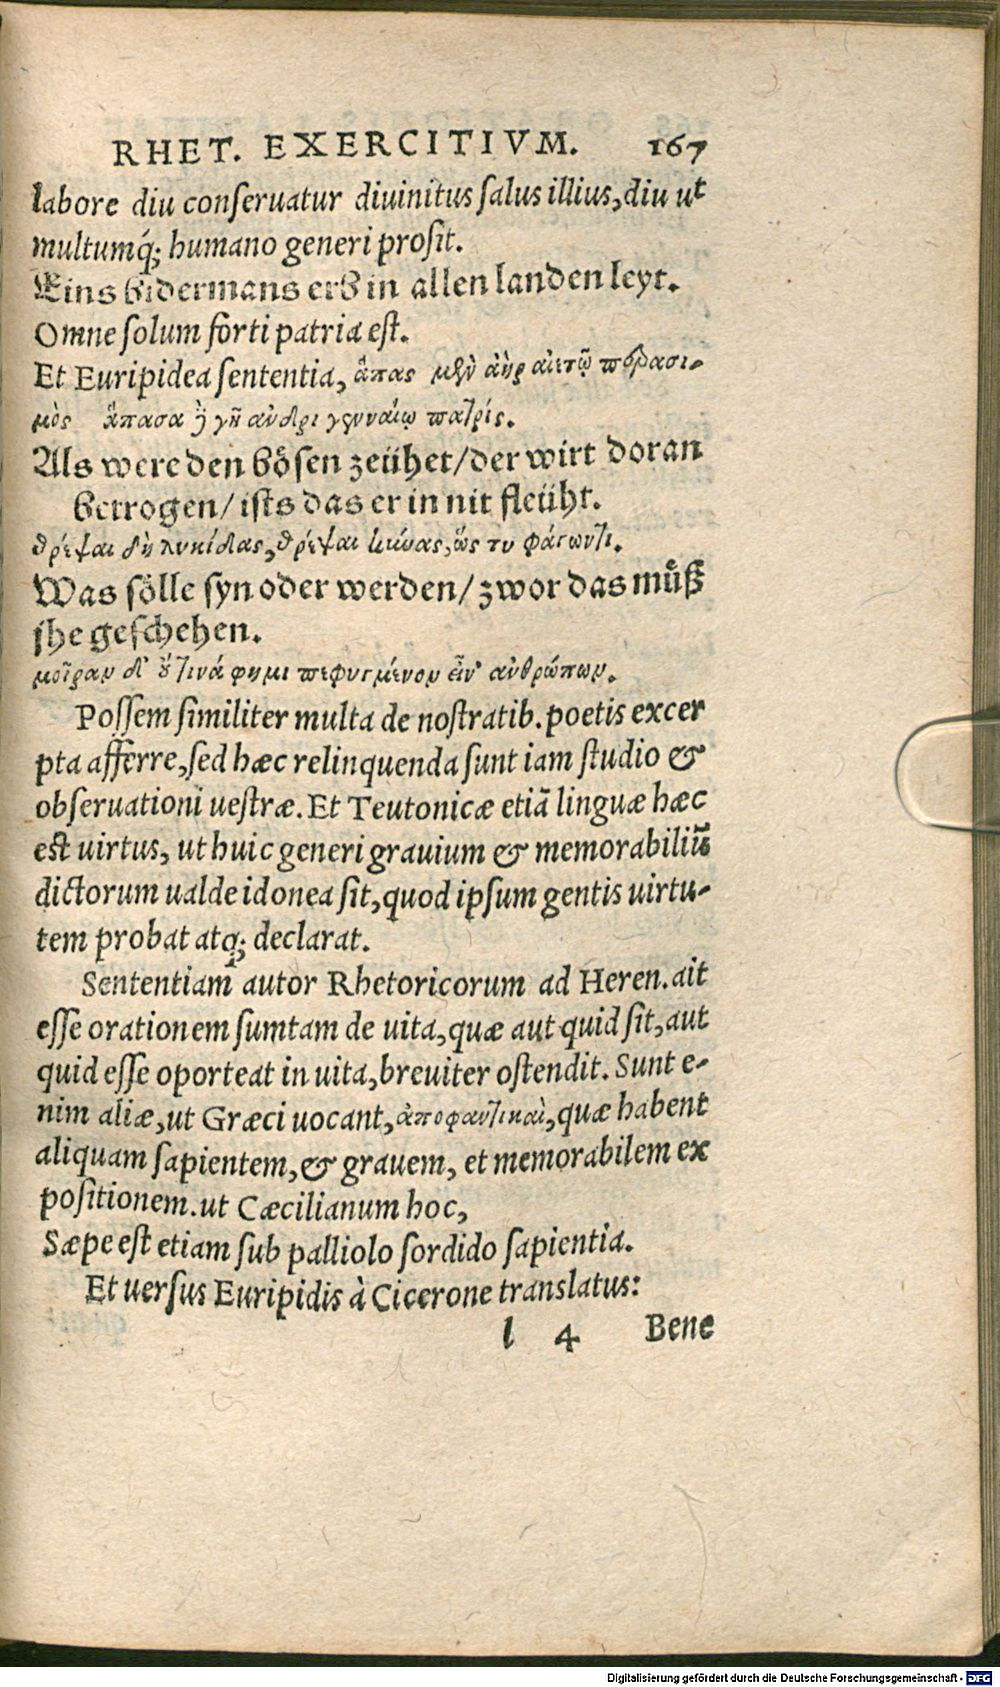 RHET. EXERCITIVM. 167
labore diu conseruatur diuinitus salus illius, diu ut
multumq́; humano generi prosit.
Eins bidermans erb in allen landen leyt.
Omne solum forti patria est.
Et Euripidea sententia, ἅπας μὲν ἀὴρ αἰετῷ περάσι-
μὸς ἅπασα ἢ γῆ ἀνδρὶ γενναίῳ πατρίς.
Als were den bösen zeühet/der wirt doran
betrogen/ ists das er in nit fleüht.
θρέψαι δὴ λυκίδας, θρέψαι κύνας, ὥς τυ φάγωντι.
Was sölle syn oder werden/ zwor das müß
jhe geschehen.
μοῖραν δ' οὔτινά φημι πεφυγμένον εἶν' ἀνθρώπων.
Possem similiter multa de nostratib. poetis excer
pta afferre, sed hæc relinquenda sunt iam studio &
obseruationi uestræ. Et Teutonicæ etiã linguæ hæc
est uirtus, ut huic generi grauium & memorabiliũ
dictorum ualde idonea sit, quod ipsum gentis uirtu-
tem probat atq; declarat.
Sententiam autor Rhetoricorum ad Heren. ait
esse orationem sumtam de uita, quæ aut quid sit, aut
quid esse oporteat in uita, breuiter ostendit. Sunt e-
nim aliæ, ut Græci uocant, ἀποφαντικαὶ, quæ habent
aliquam sapientem, & grauem, et memorabilem ex
positionem. ut Cæcilianum hoc,
Sæpe est etiam sub palliolo sordido sapientia.
Et uersus Euripidis à Cicerone translatus:
l 4 Bene
Digitalisierung gefördert durch die Deutsche Forschungsgemeinschaft - DFG